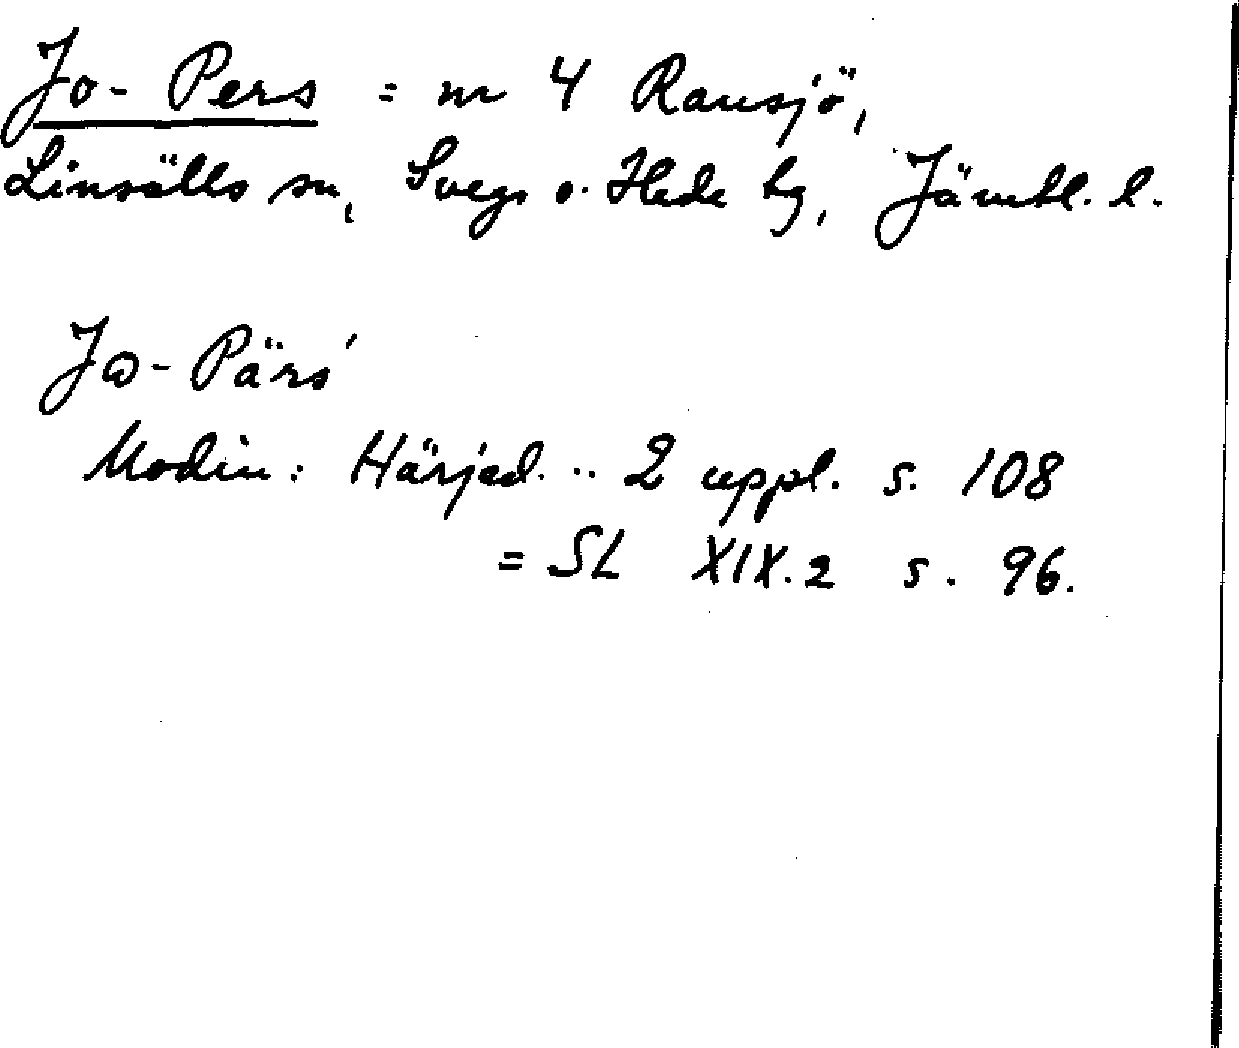 Jo-Pers = nr 4 Ransjö,
Linsälls sn, Svegs o. Hede tg, Jämtl. l.
Jo-Pärs'
Modin: Härjed. .. 2 uppl. s. 108
= SL XIX.2 s. 96.